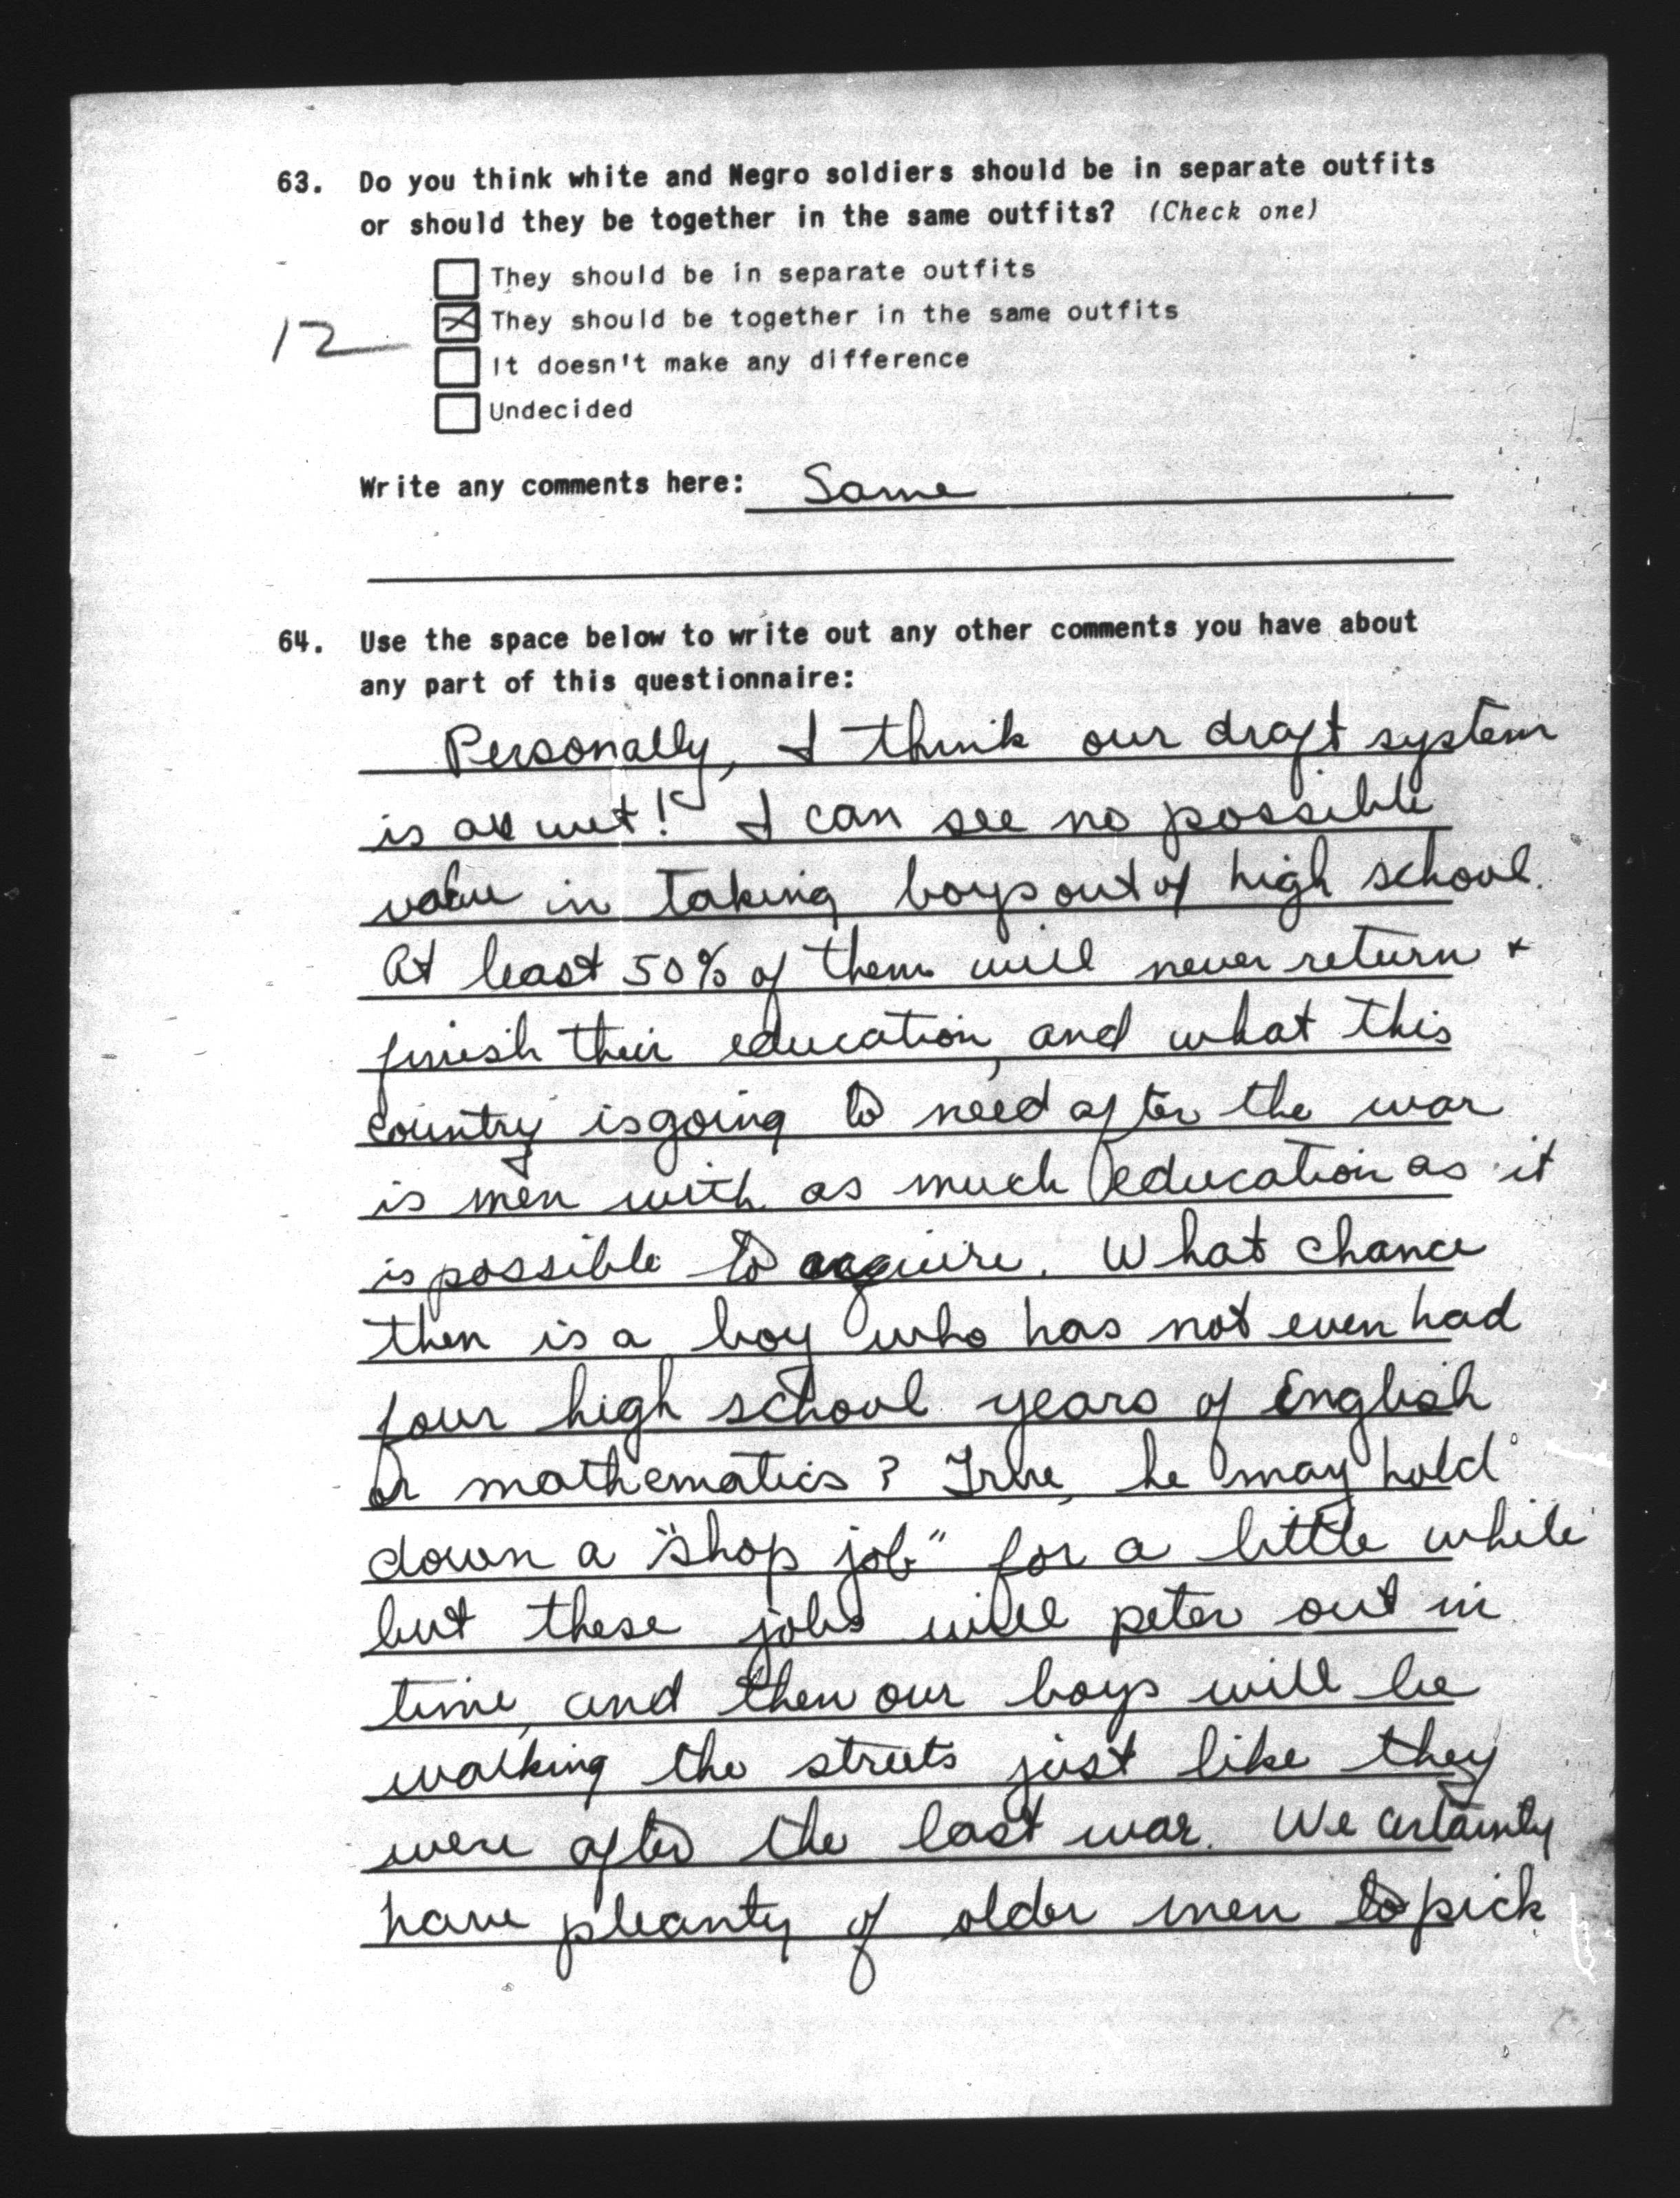 63. Do you think white and Negro soldiers should be in separate outfits
or should they be together in the same outfits? (Check one)
They should be in separate outfits
12 ☒ They should be together in the same outfits
It doesn't make any difference
Undecided
Write any comments here: Same
64. Use the space below to write out any other comments you have about
any part of this questionnaire:
Personally, I think our draft system
is all wet! I can see no possible
value in taking boys out of high school.
At least 50% of them will never return +
finish their education, and what this
country is going to need after the war
is men with as much education as it
is possible to acquire. What chance
then is a boy who has not even had
four high school years of English
or mathematics? True, he may hold
down a "shop job" for a little while
but these jobs will peter out in
time, and then our boys will be
walking the streets just like they
were after the last war. We certainly
have pleanty of older men to pick